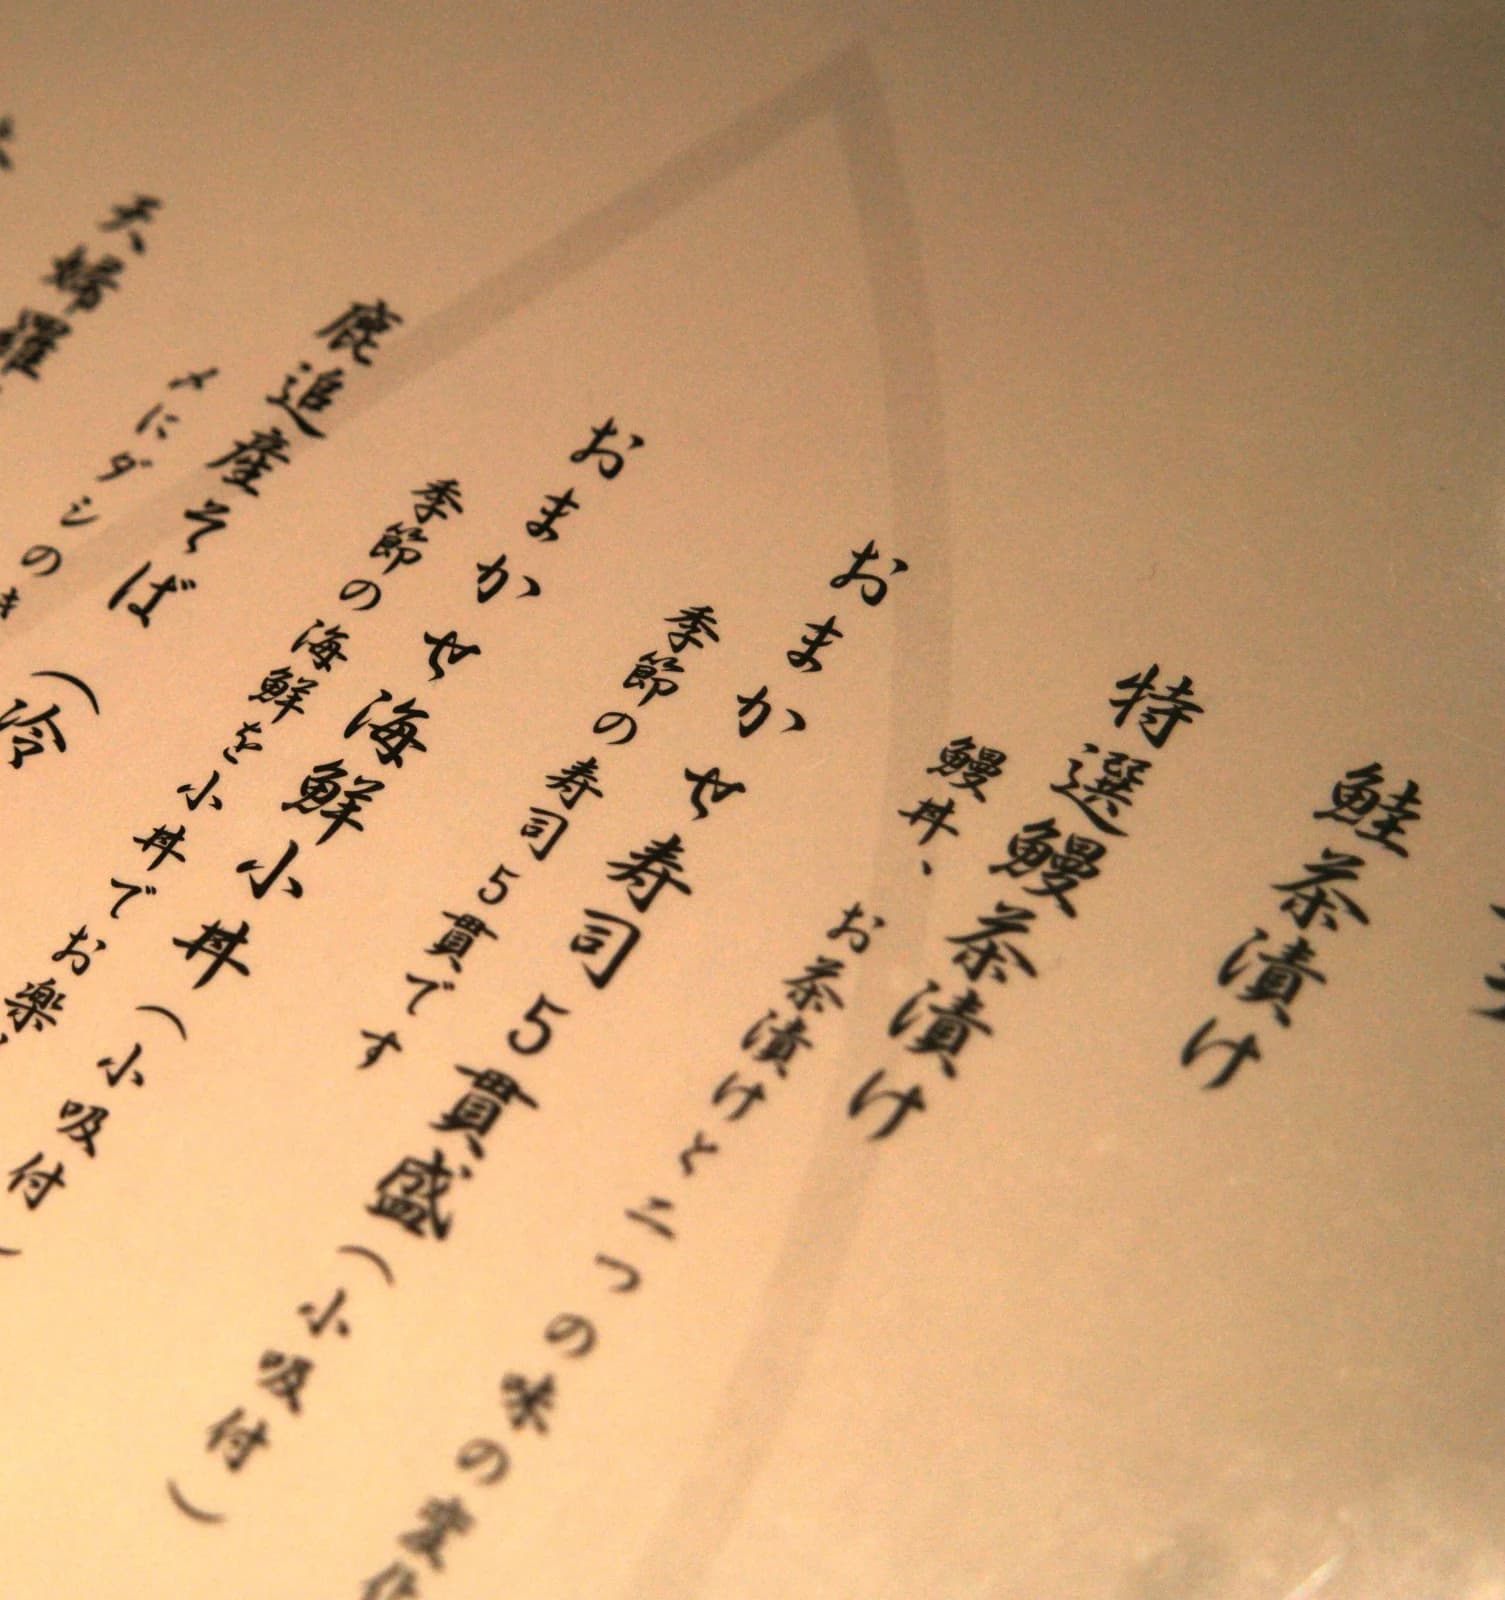 鮭茶漬け
特選鰻茶漬け
鰻丼、お茶漬けと二つの味の変化
おまかせ寿司5貫盛（小吸付）
季節の寿司5貫です
おまかせ海鮮小丼（小吸付）
季節の海鮮を小丼でお楽
鹿追産そば（冷
〆にダシの
天婦羅